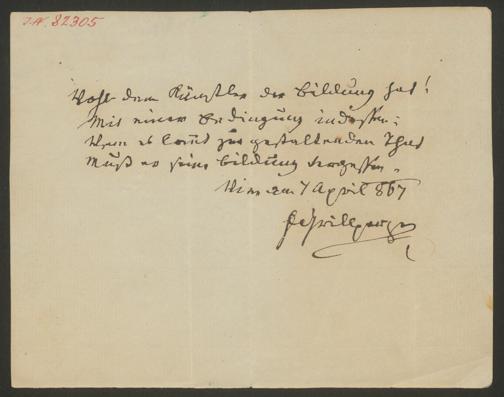 I.N. 82305
Wohl dem Künstler der Bildung hat!
Mit einer Bedingung indessen:
Wenn es kommt zur gestaltenden That
Muß er seine Bildung vergessen.
Wien am 7 April 867
Grillparzer